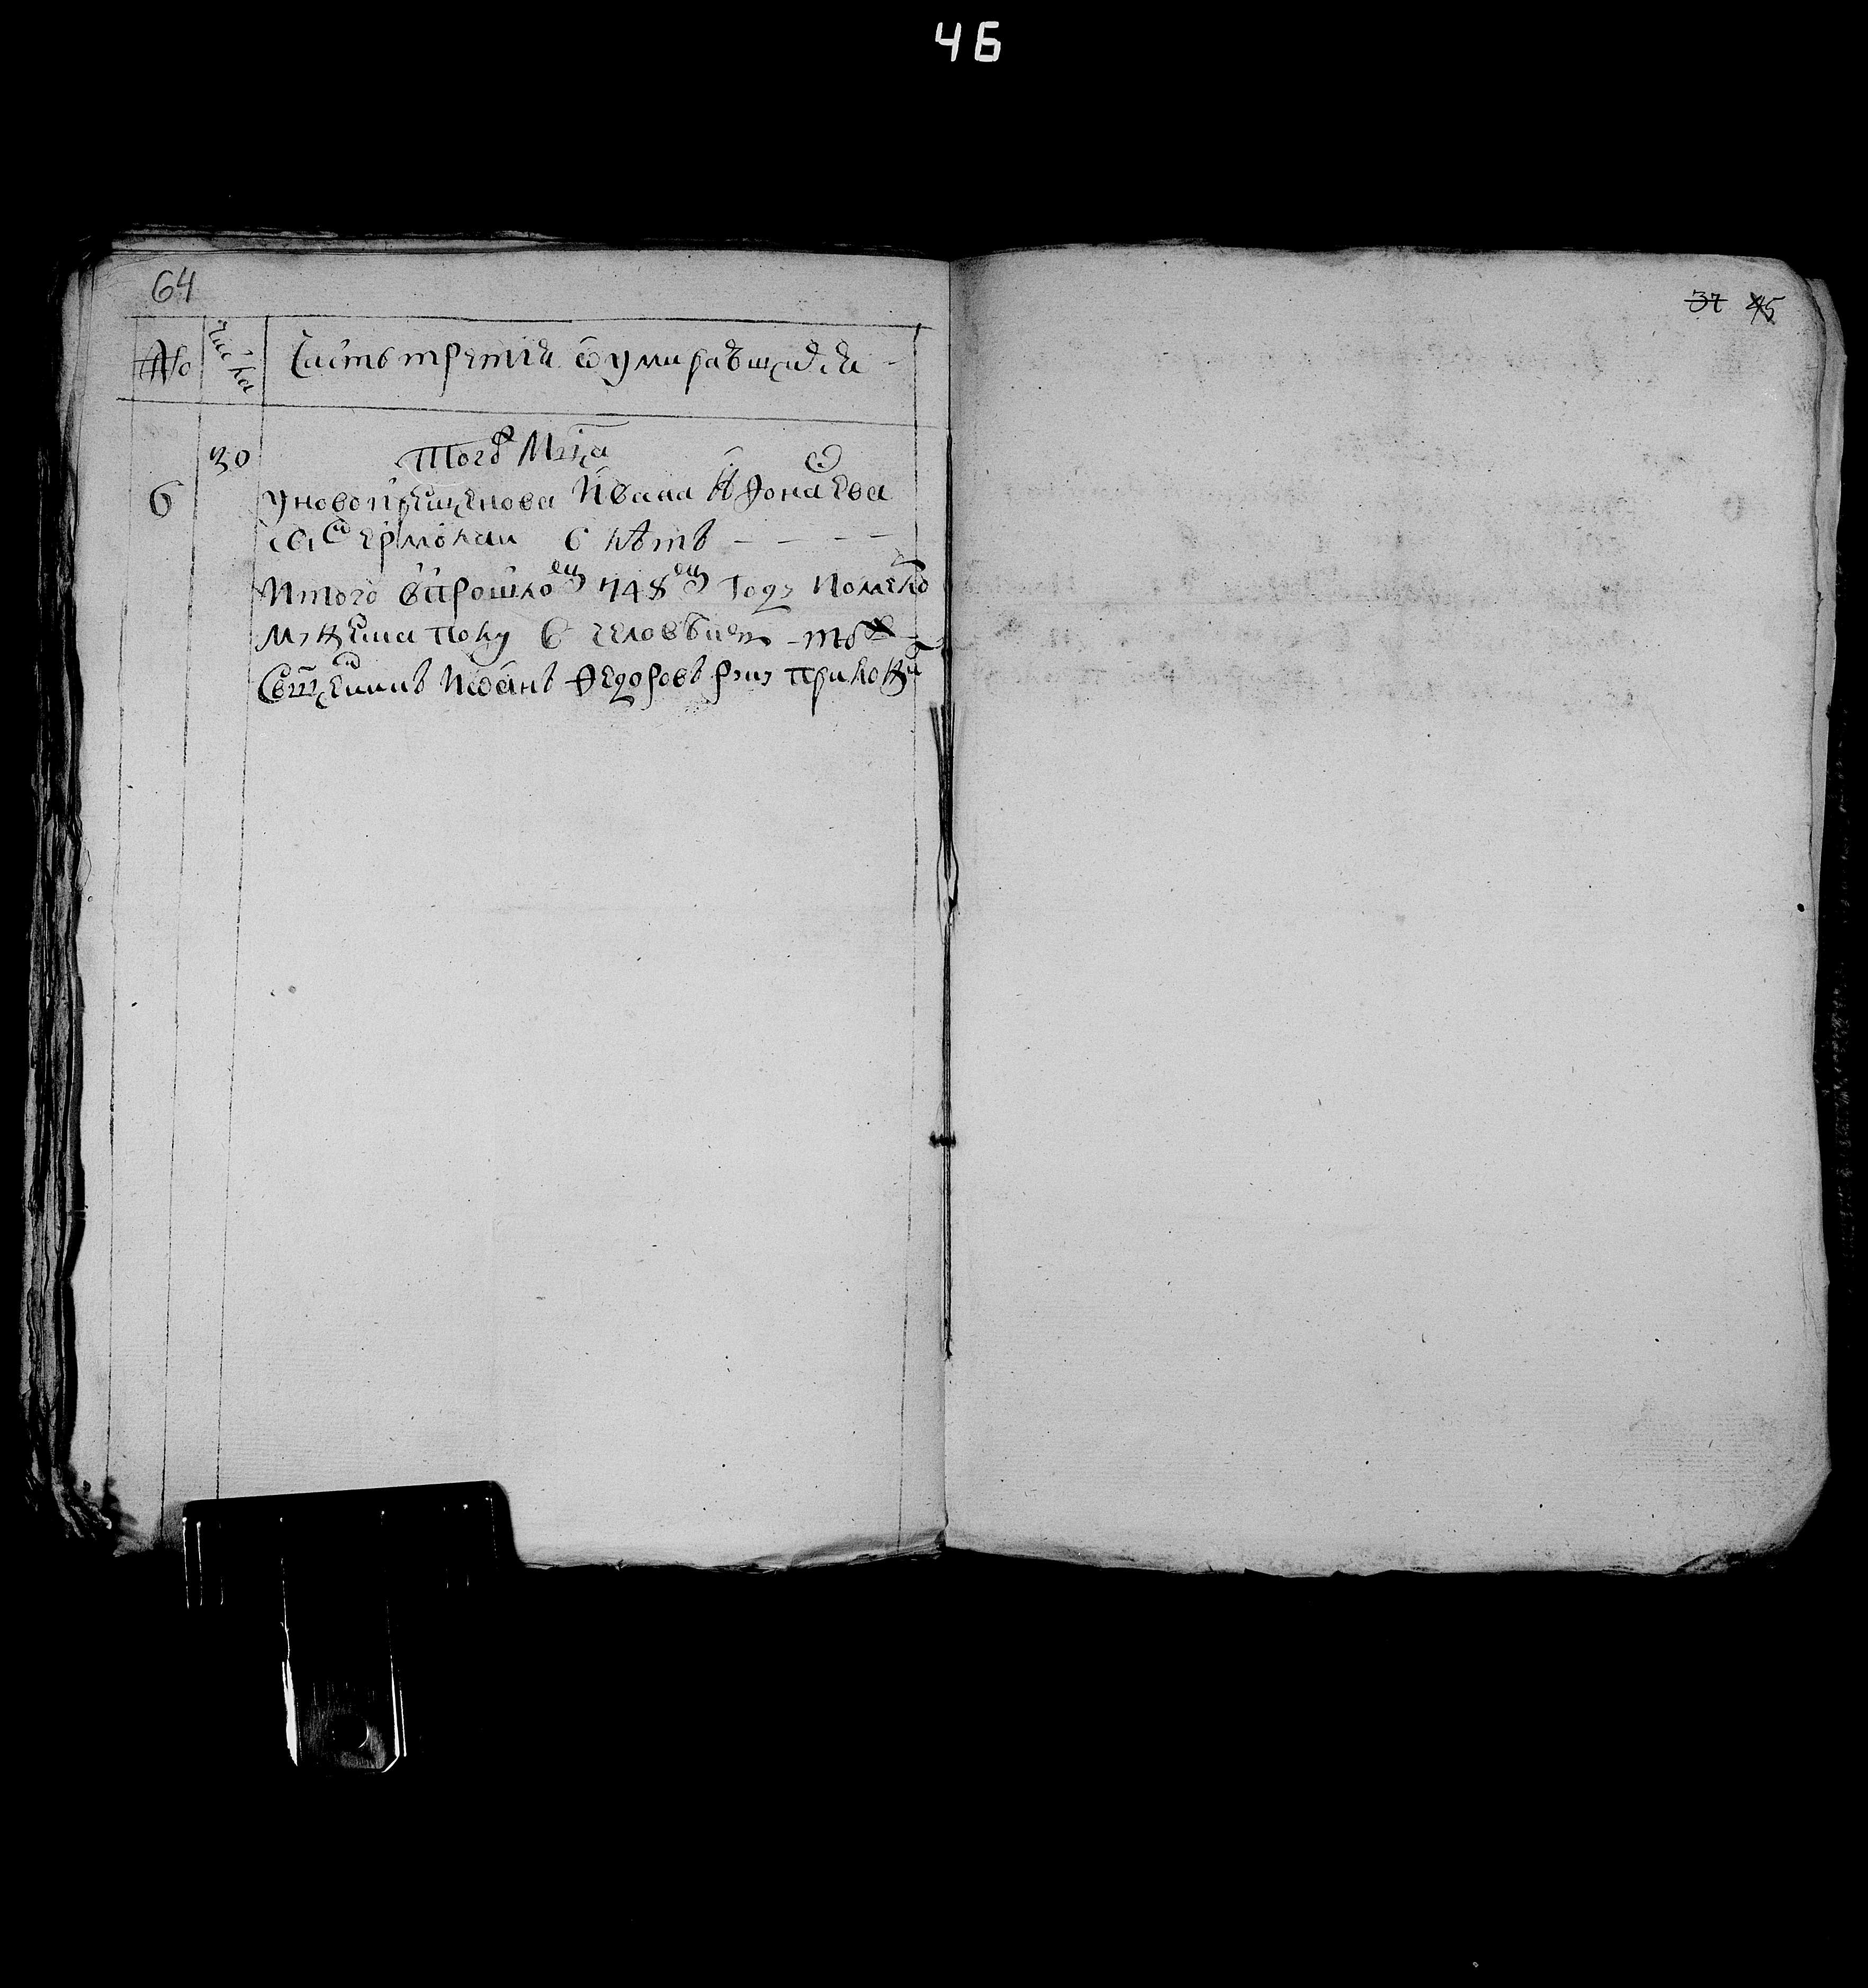 46
64
37 45
№ числа Часть третия ѡ умиравшихъ
30 Того Мца
6 у новокрещенова Ивана Афонасева
сынъ Ермолаи 6 летъ
Итого въ прошломъ 748мъ году
мужеска полу 6 человекъ
Священникъ Иоаннъ Федоровъ руку приложилъ